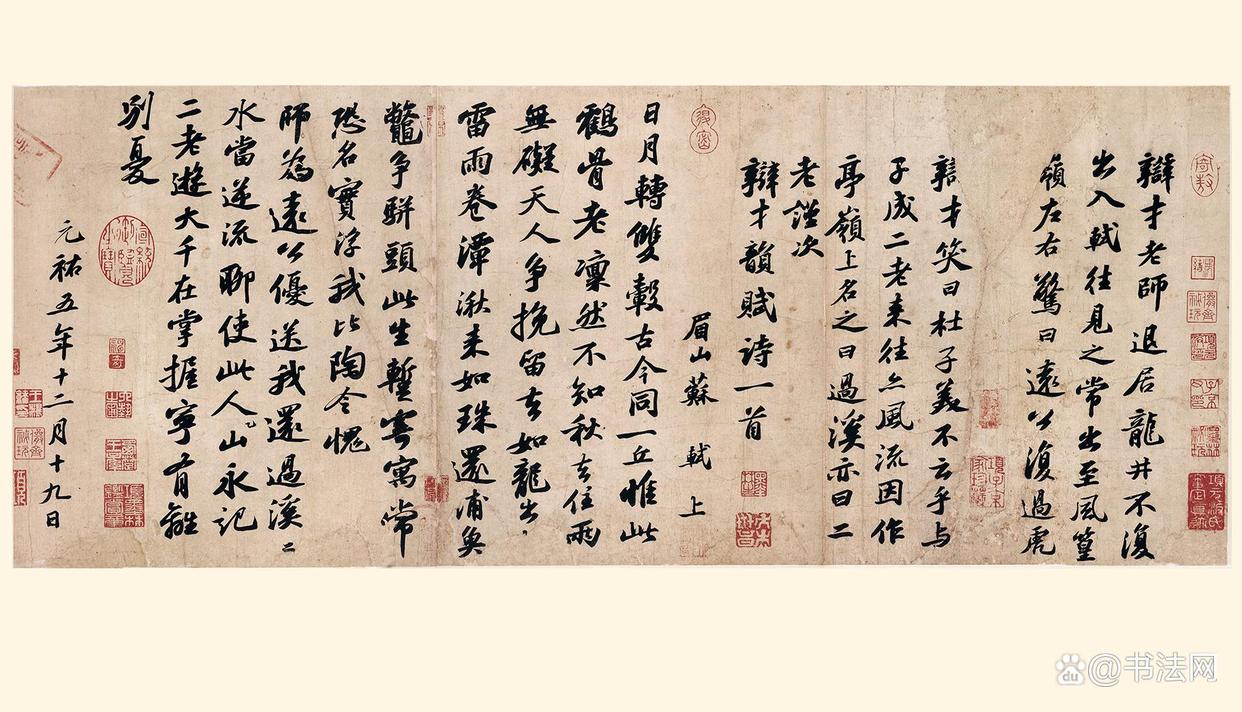 辯才老師退居龍井不復
出入軾往見之常出至風篁
嶺左右驚曰遠公復過虎
辯才笑曰杜子美不云乎与
子成二老来往亦風流因作
亭嶺上名之曰過溪亦曰二
老謹次
辯才韻賦詩一首
眉山蘇軾上
日月轉雙轂古今同一丘惟此
鶴骨老凜然不知秋去住兩
無礙天人争挽留去如龍出
雷雨卷潭湫来如珠還浦魚
鼈争駢頭此生暫寄寓常
恐名實浮我比陶令愧
師為遠公優送我還過溪〻
水當逆流聊使此人山永記
二老遊大千在掌握寧有離
別憂
元祐五年十二月十九日
du @书法网